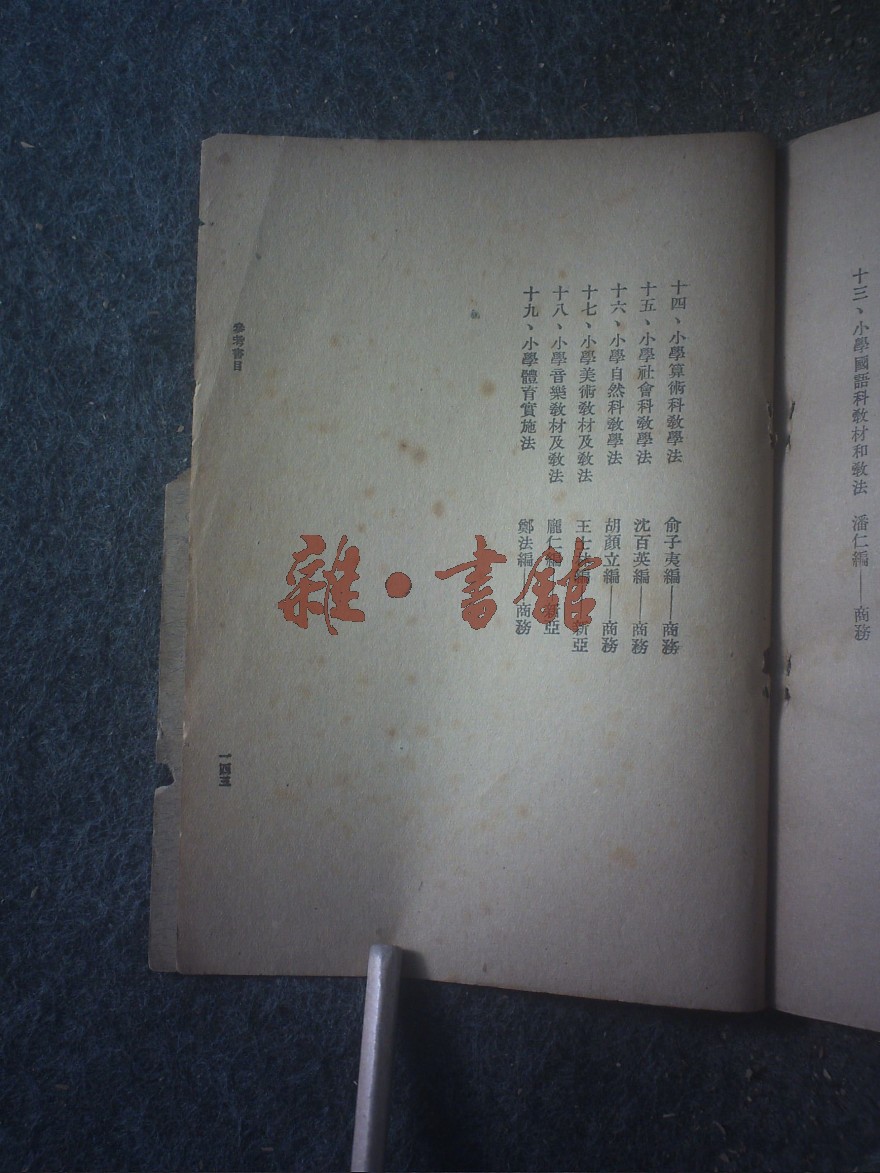 十三、小學國語科教材和教法　潘仁編——商務
十四、小學算術科教學法　俞子夷編——商務
十五、小學社會科教學法　沈百英編——商務
十六、小學自然科教學法　胡顏立編——商務
十七、小學美術教材及教法　王　編　新亞
十八、小學音樂教材及教法　龐仁編　新亞
十九、小學體育實施法　鄭法編　商務
參考書目
一四五
雜·書館